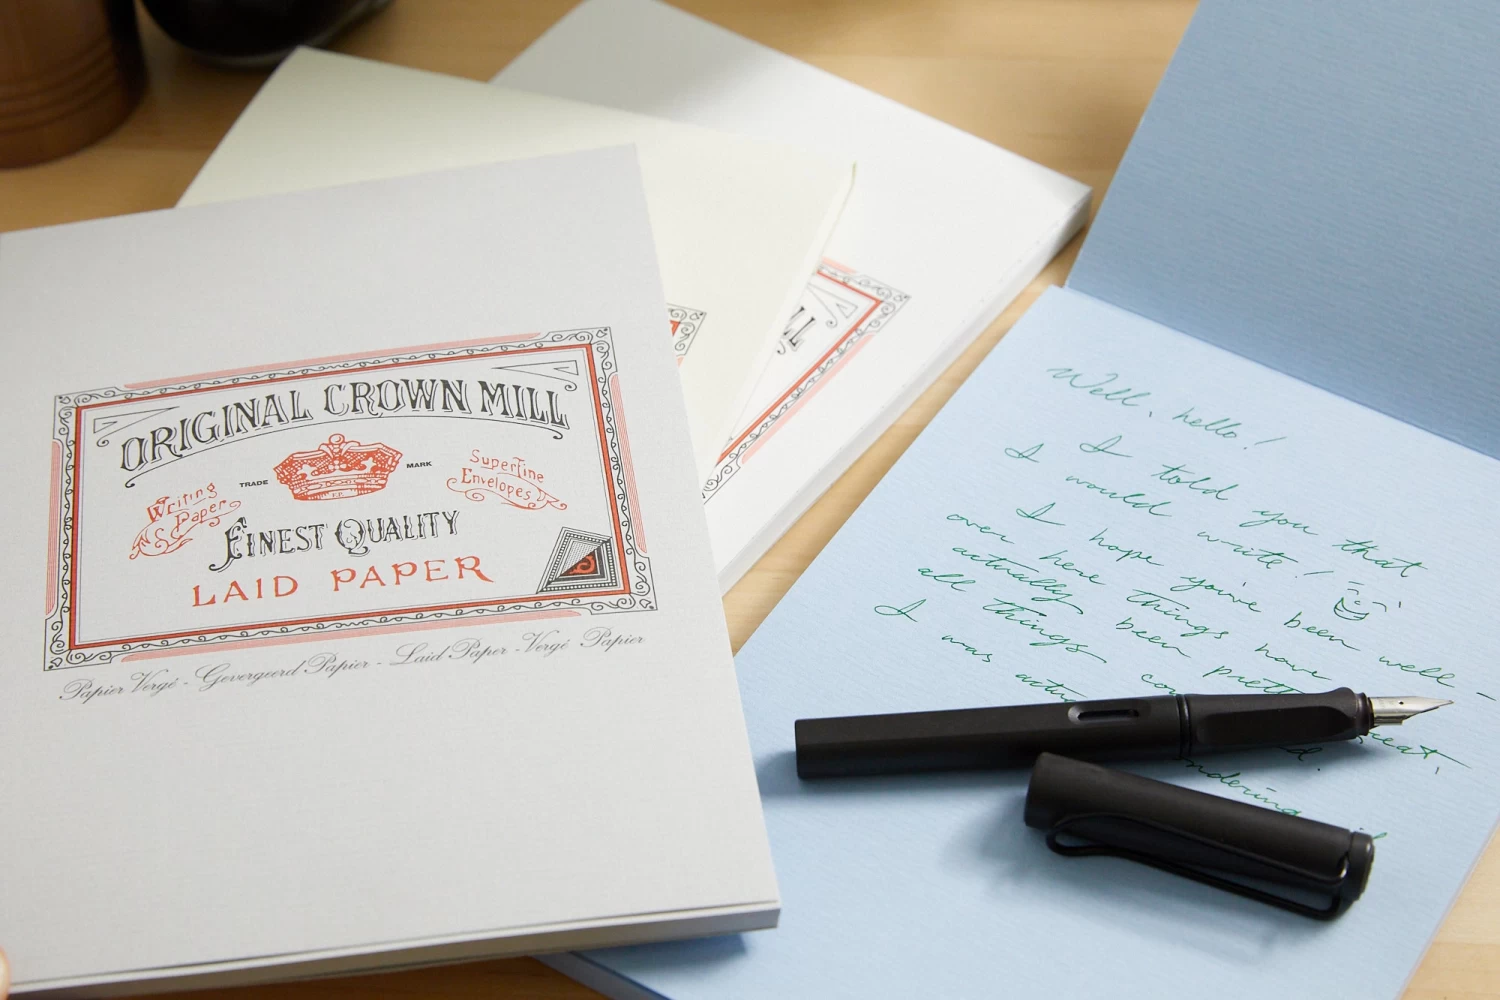 ORIGINAL CROWN MILL
TRADE MARK
Writing
Paper
Superfine
Envelopes
FINEST QUALITY
LAID PAPER
Papier Vergé - Gevergeerd Papier - Laid Paper - Vergé Papier
LL
Well, hello!
I told you that
I would write!
I hope you've been well -
over here things have
actually been pretty great,
all things
I was